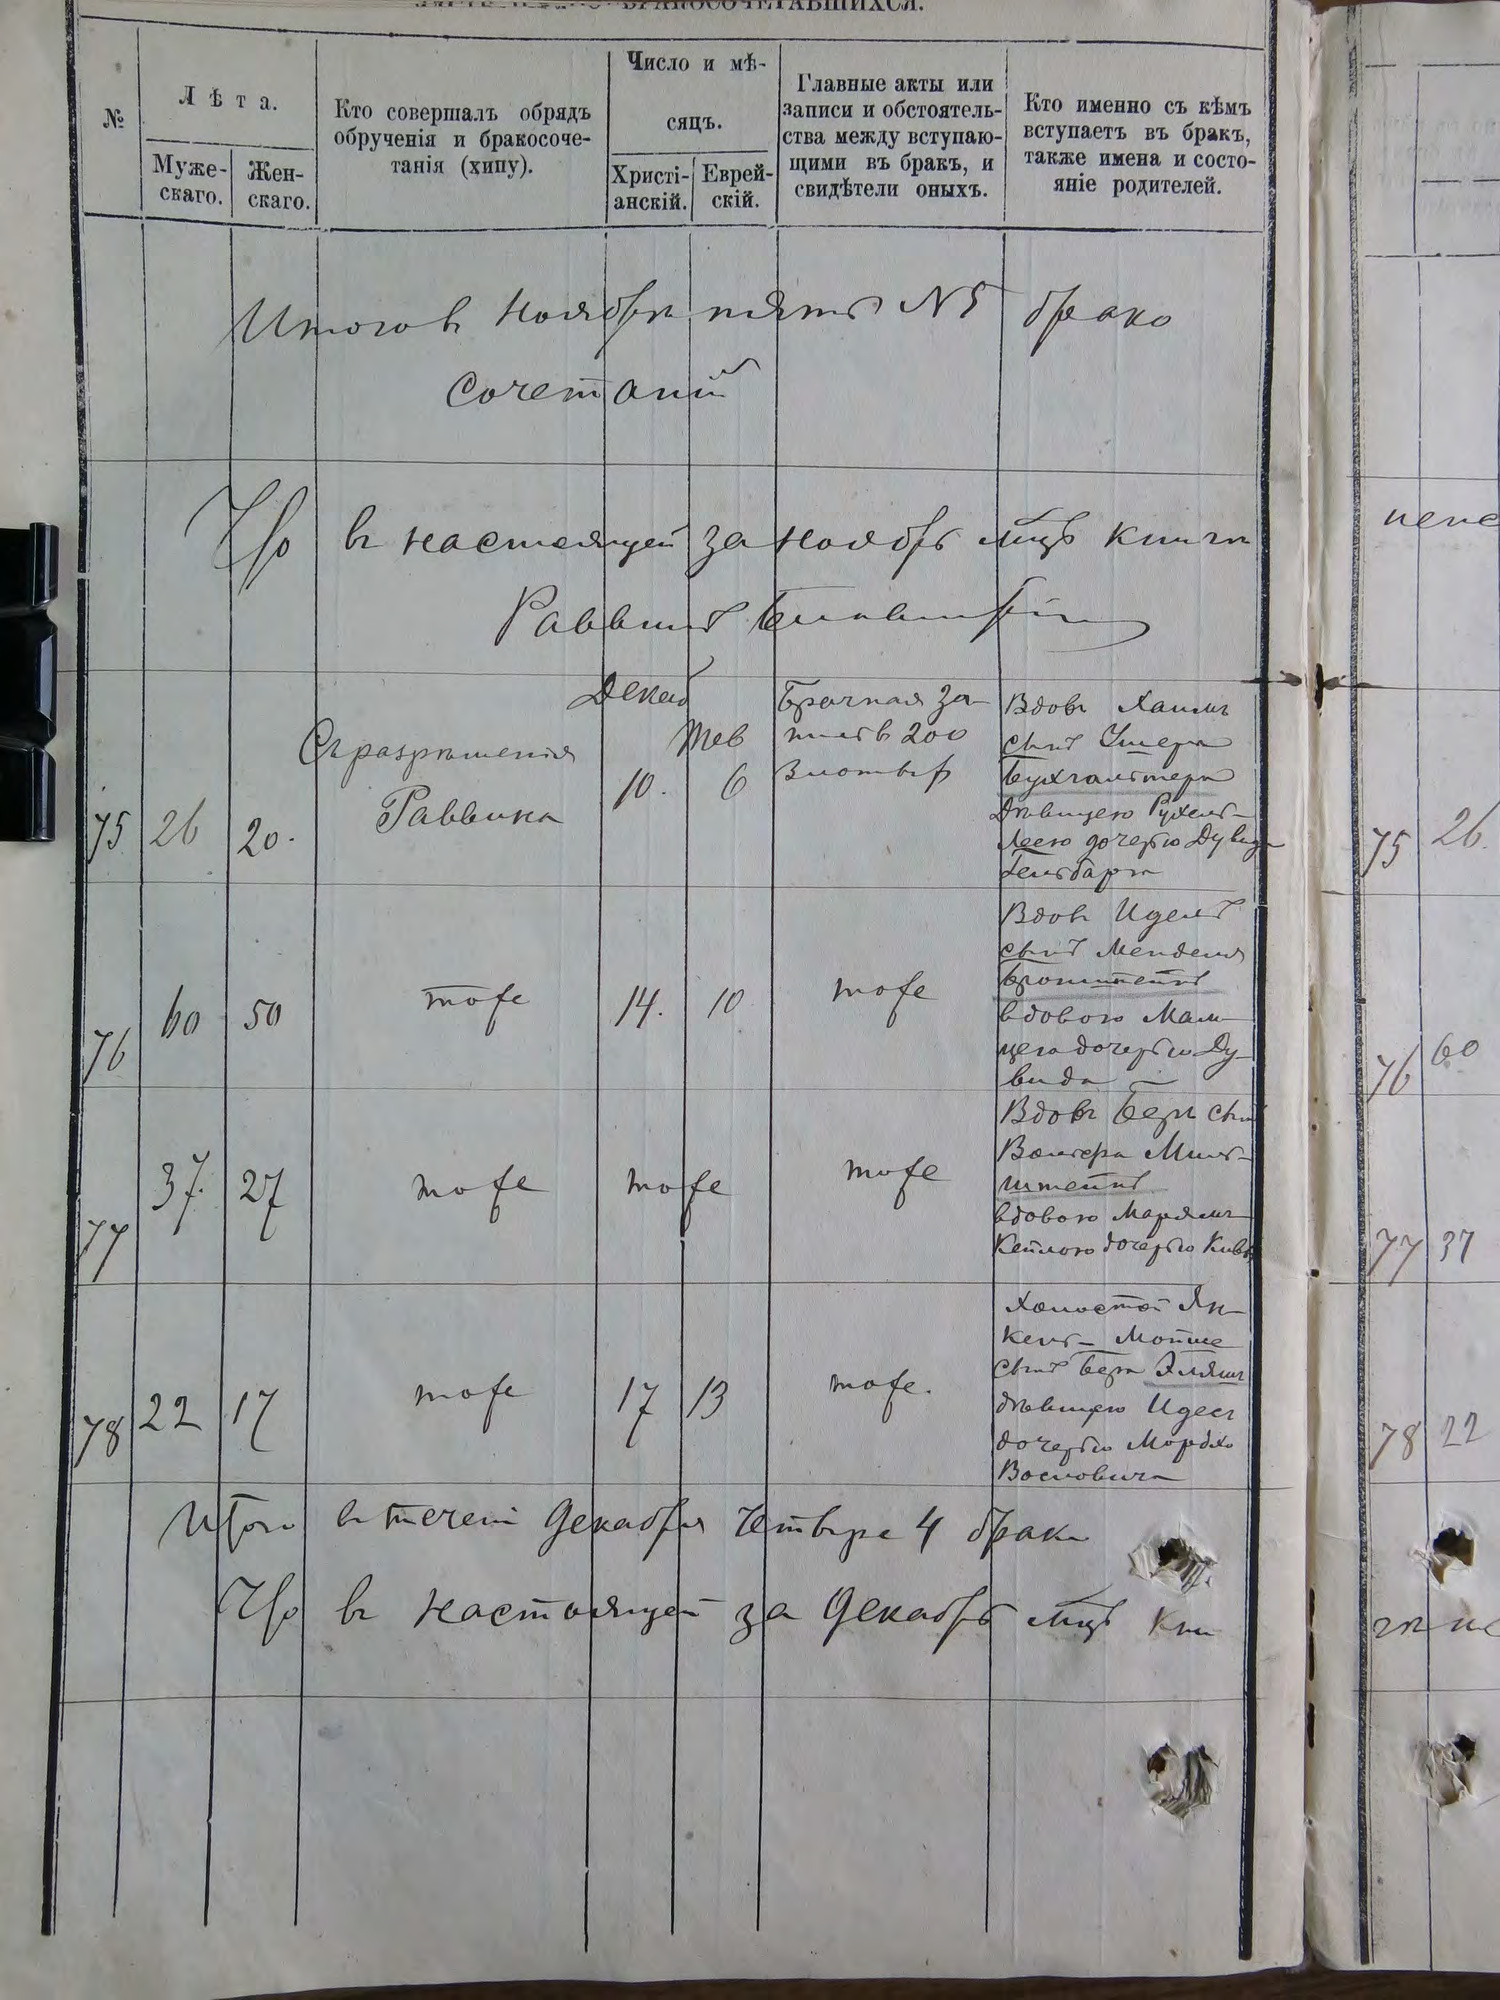 БРАКОСОЧЕТАВШИХСЯ.
№
Лѣта.
Муже-
скаго.
Жен-
скаго.
Кто совершалъ обрядъ
обрученія и бракосоче-
танія (хипу).
Число и мѣ-
сяцъ.
Христі-
анскій.
Еврей-
скій.
Главные акты или
записи и обстоятель-
ства между вступаю-
щими въ бракъ, и
свидѣтели оныхъ.
Кто именно съ кѣмъ
вступаетъ въ бракъ,
также имена и состо-
яніе родителей.
Итого въ Ноябрѣ пять №5 брако
сочетаній
Что въ настоящей за Ноябрь мцъ книги
Раввинъ
75
26
20.
Съ разрѣшенія
Раввина
Декаб
10.
Тев
6
Брачная за-
пись въ 200
злотыхъ
Вдовъ Хаимъ
сынъ Ушера
Бухгалтера
Дѣвицею Рухель-
Леею дочерью Дувида
Гельбарга
76
60
50
тоже
14.
10
тоже
Вдовъ Идель
сынъ Менделя
Бронштейнъ
вдовою Мал-
дочерью Ду-
вида
77
37.
27
тоже
тоже
тоже
Вдовъ Беръ сынъ
Волгера Миль-
штейнъ
вдовою Марьямъ
Кейлою дочерью Кивы
78
22
17
тоже
17
13
тоже.
Холостой Ян-
кель-Мойше
сынъ Бера Элмянъ
дѣвицею Идесъ
дочерью Мордко
Восковича
Итого въ теченіи Декабря Четыре 4 брака
Что въ настоящей за Декабрь мцъ кни
75
26.
76
60
77
37
78
22